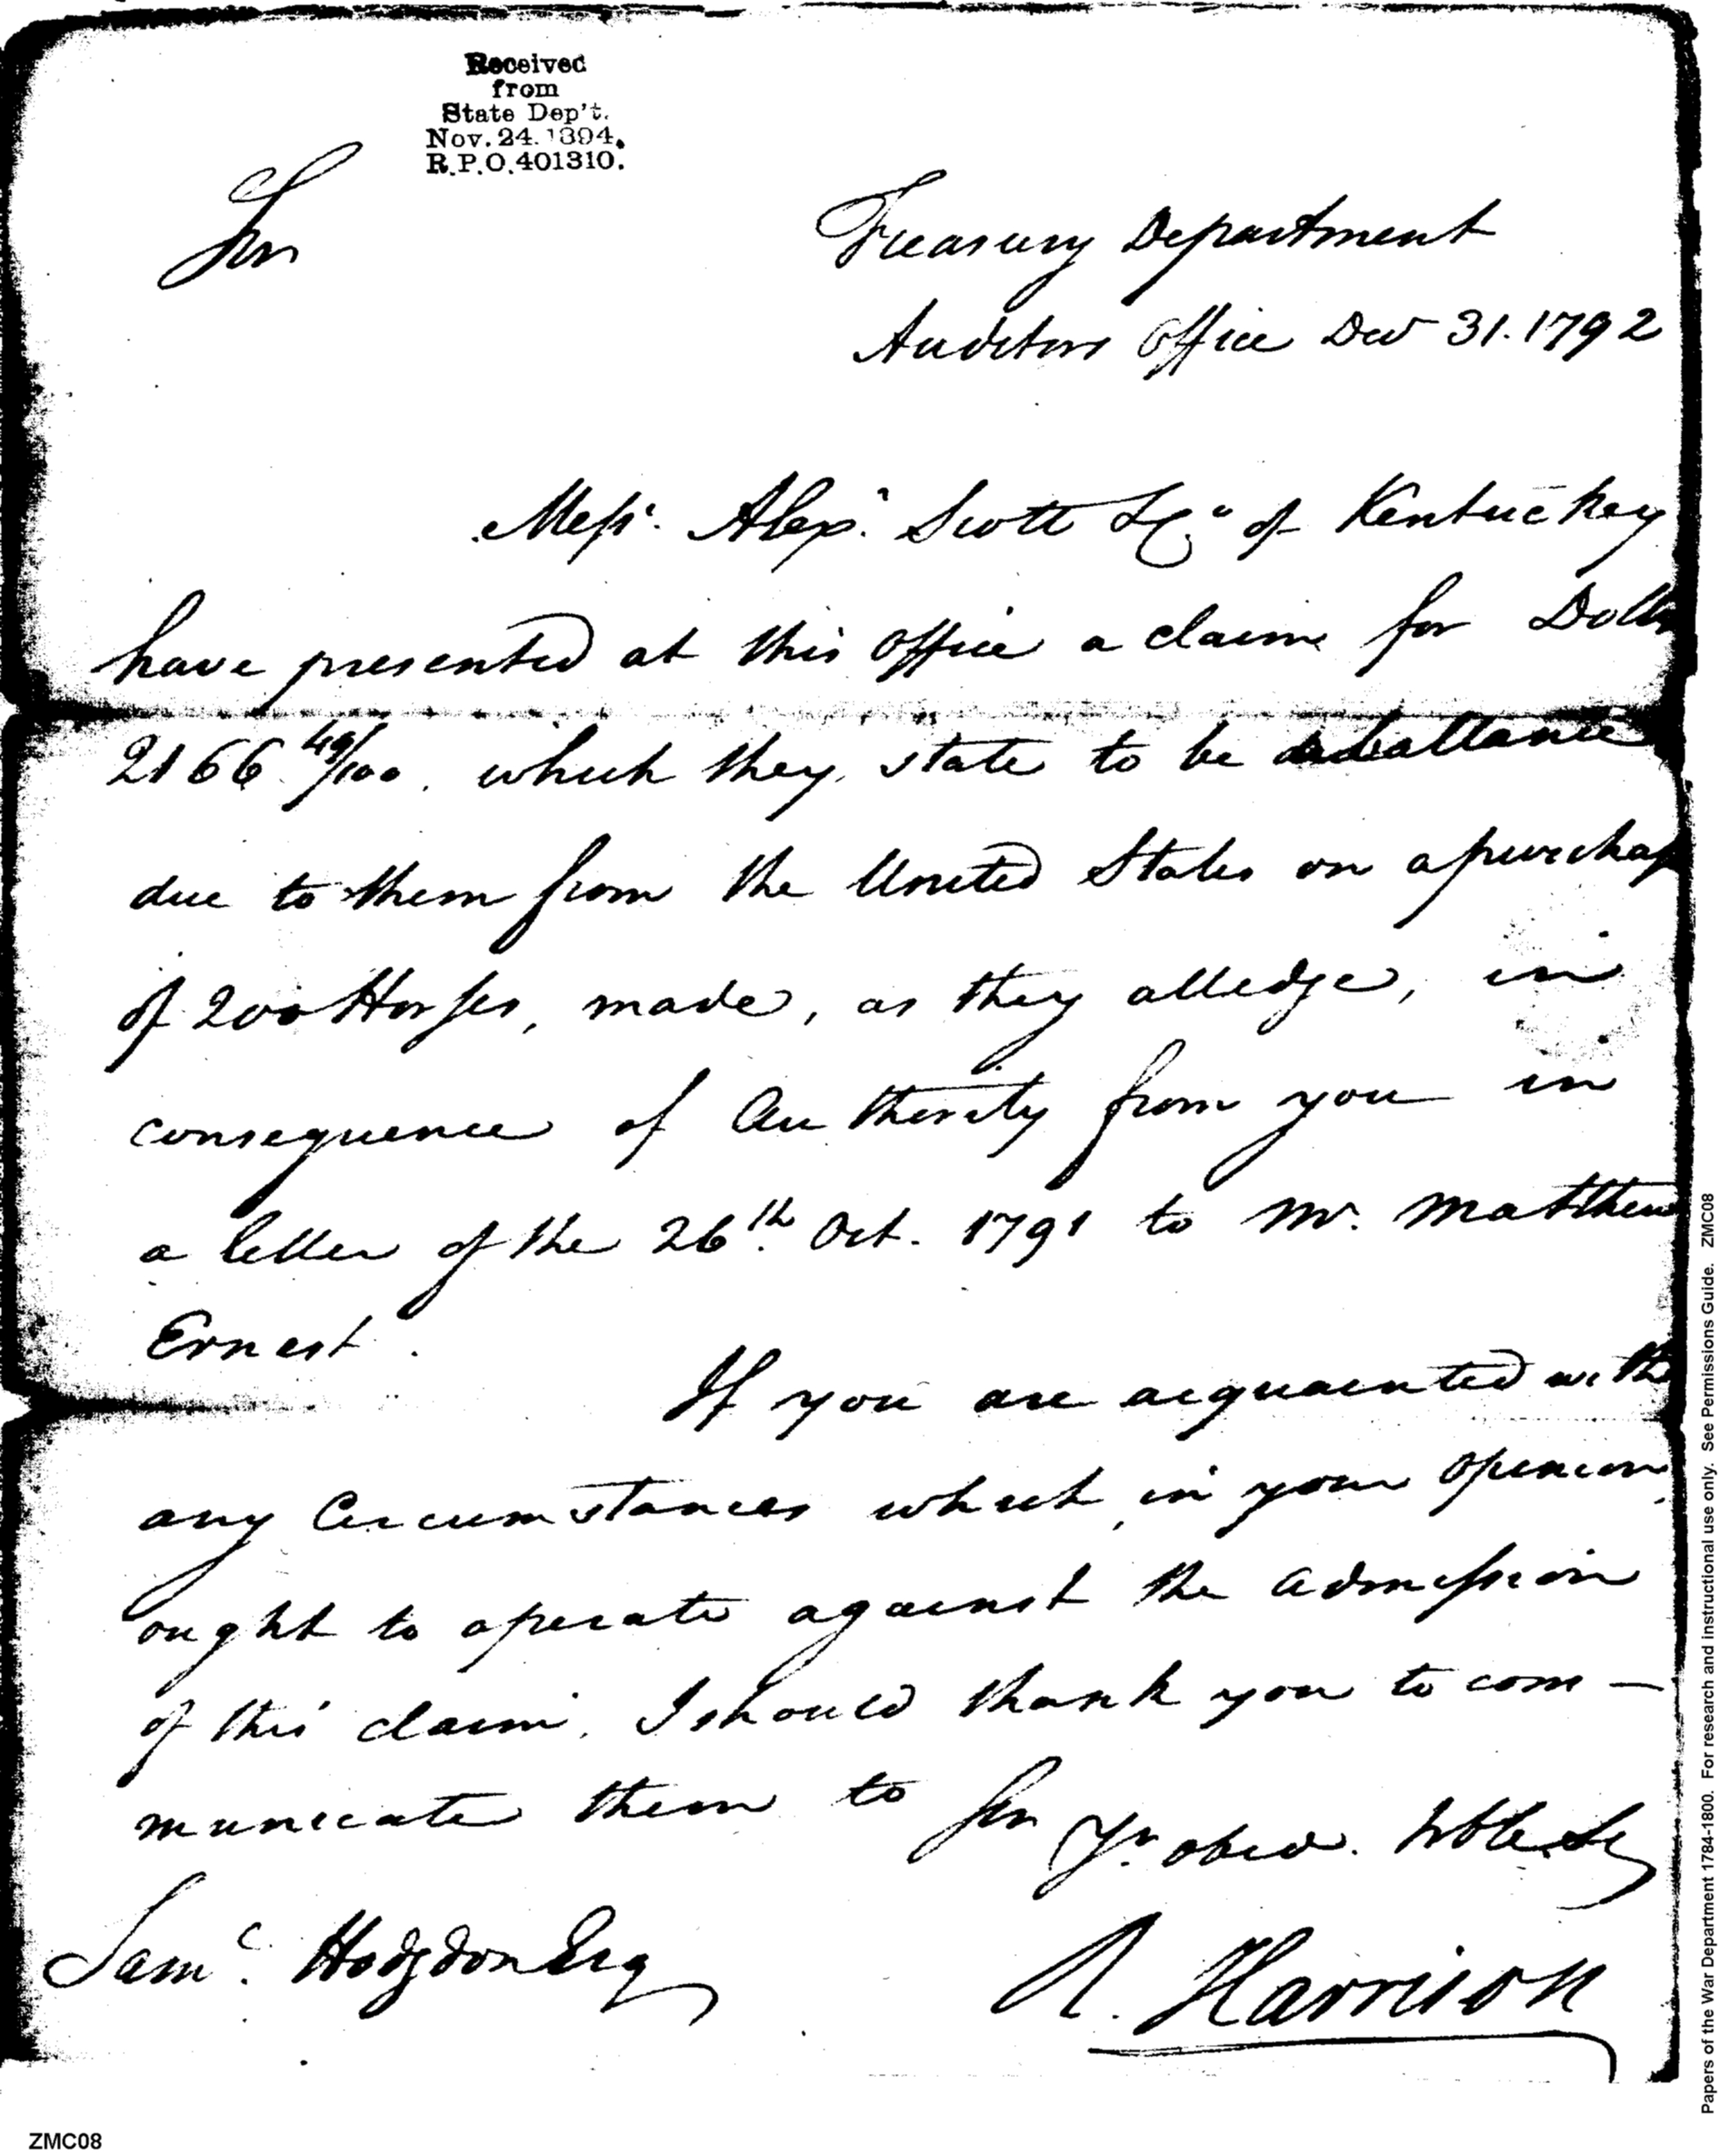 Received
from
State Dep't.
Nov. 24. 1894.
R.P.O. 401310.
Sir
Treasury Department
Auditors Office Decr 31. 1792
Messrs. Alexr. Scott & Co. of Kentuckey
have presented at this Office a claim for Dolls
2166 49/100. which they state to be a ballance
due to them from the United States on a purchase
of 200 Horses, made, as they alledge, in
consequence of Authority from you in
a letter of the 26th. Oct. 1791 to Mr. Matthew
Ernest.
If you are acquainted with
any Circumstances which, in your Opinion,
ought to operate against the admission
of this claim, I should thank you to com—
municate them to Sir Yr. obed. hble Sr
Saml. Hodgdon Esq
R. Harrison
ZMC08
Papers of the War Department 1784-1800. For research and instructional use only. See Permissions Guide. ZMC08